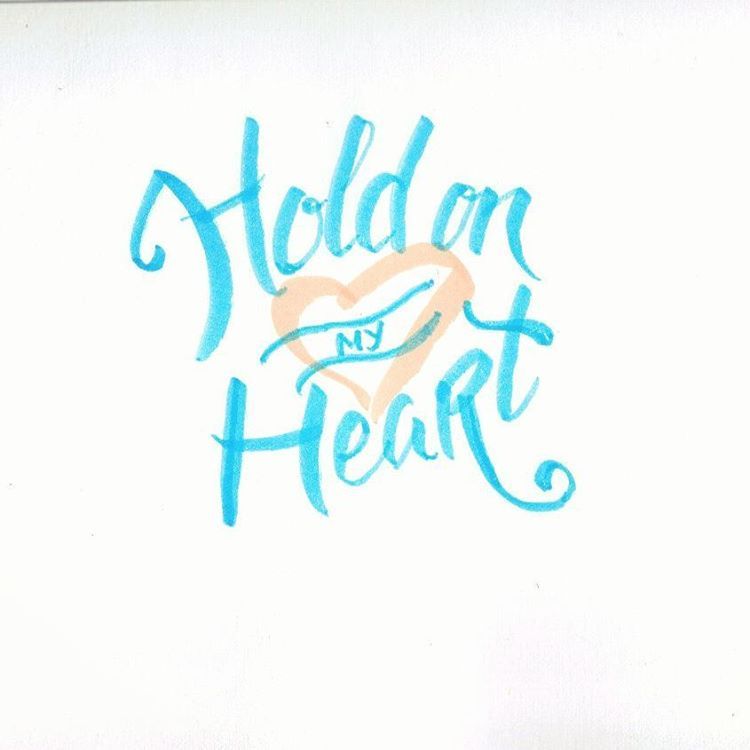 Hold on
MY
HeaRt